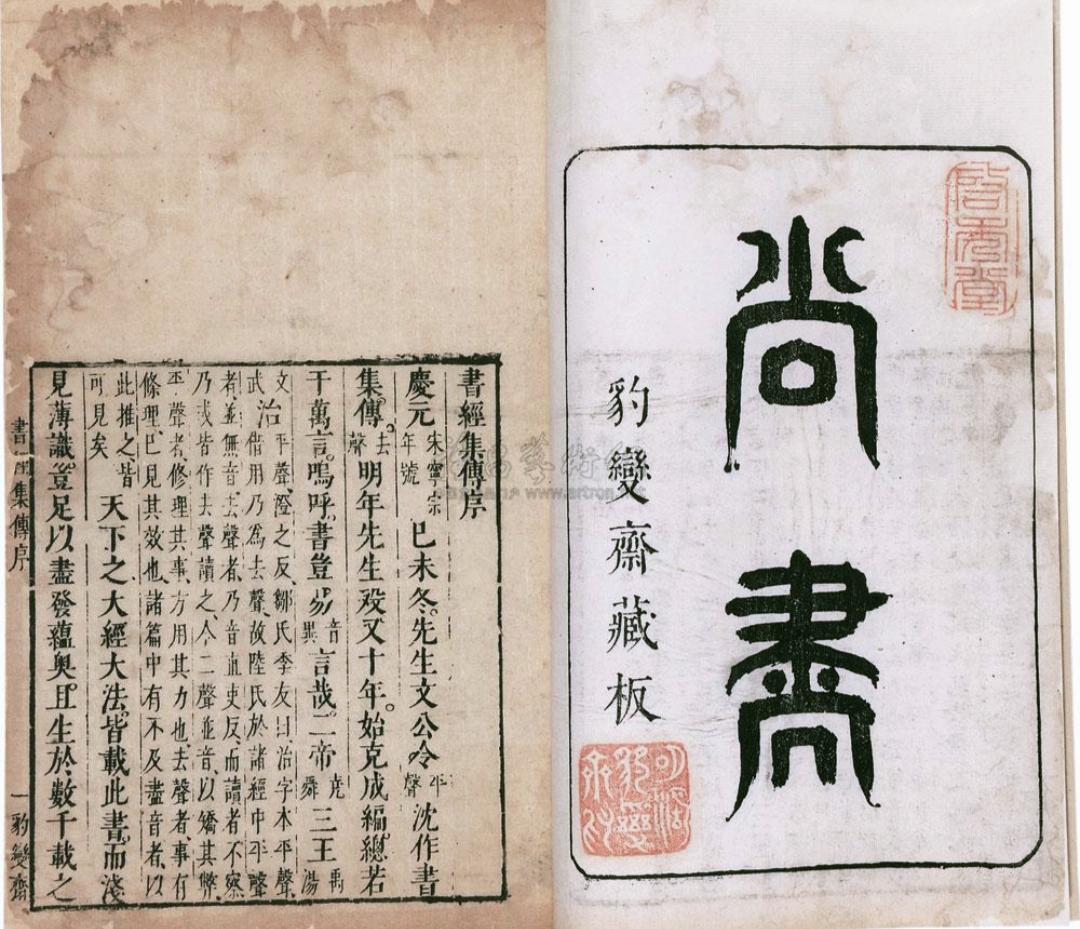 尚書
豹變齋藏板
書經集傳序
慶元宋寧宗年號己未冬。先生文公令平聲沈作書
集傳。去聲明年先生歿。又十年。始克成編。總若
干萬言。嗚呼。書豈易音異言哉。二帝堯舜三王禹湯
文武治平聲、澄之反、鄒氏季友曰、治字本平聲、借用乃為去聲、故陸氏於諸經中平聲
者、並無音、去聲者、乃音直吏反、而讀者不察、乃或皆作去聲讀之、今二聲並音、以矯其弊、
平聲者、修理其事、方用其力也、去聲者、事有條理、已見其效也、諸篇中有不及盡音者、以
此推之、皆可見矣天下之大經大法。皆載此書。而淺
見薄識。豈足以盡發蘊奧。且生於數千載之
集傳序
一
豹變齋